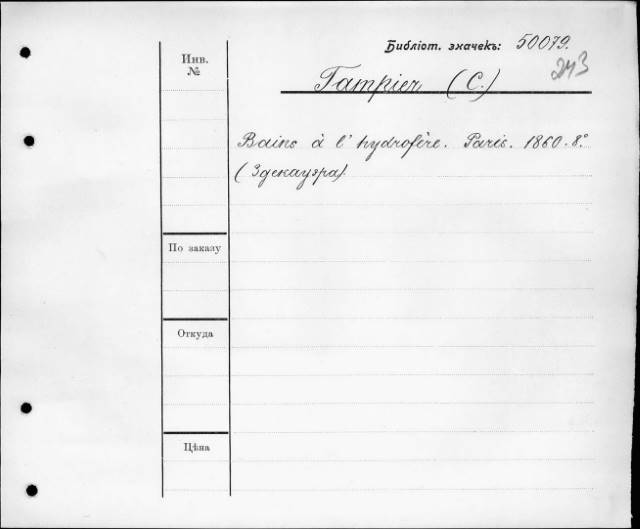 Библіот. значекъ: 50079.
Инв. №
243
Tampier (C.)
Bains à l'hydrofère. Paris. 1860. 8°.
(Здекауэра).
По заказу
Откуда
Цѣна